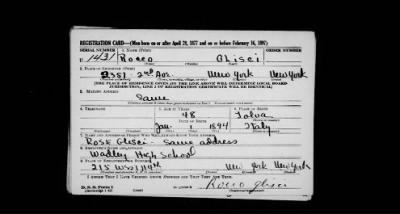 REGISTRATION CARD—(Men born on or after April 28, 1877 and on or before February 16, 1897)
SERIAL NUMBER 1. NAME (Print)
U 1431 Rocco Glisci
2. PLACE OF RESIDENCE (Print)
2351 2nd Ave. New York New York
[THE PLACE OF RESIDENCE GIVEN ON THE LINE ABOVE WILL DETERMINE LOCAL BOARD
JURISDICTION; LINE 2 OF REGISTRATION CERTIFICATE WILL BE IDENTICAL]
3. MAILING ADDRESS
Same
4. TELEPHONE
48
DATE OF BIRTH
Jan. 1 1894 Italy
7. NAME AND ADDRESS OF PERSON WHO WILL ALWAYS KNOW YOUR ADDRESS
Rose Glisci - Same address
8. EMPLOYER'S NAME AND ADDRESS
Wadley High School
9. PLACE OF EMPLOYMENT OR BUSINESS
215 W 114th New York New York
I AFFIRM THAT I HAVE VERIFIED ABOVE ANSWERS AND THAT THEY ARE TRUE.
D. S. S. Form 1
Rocco Glisci